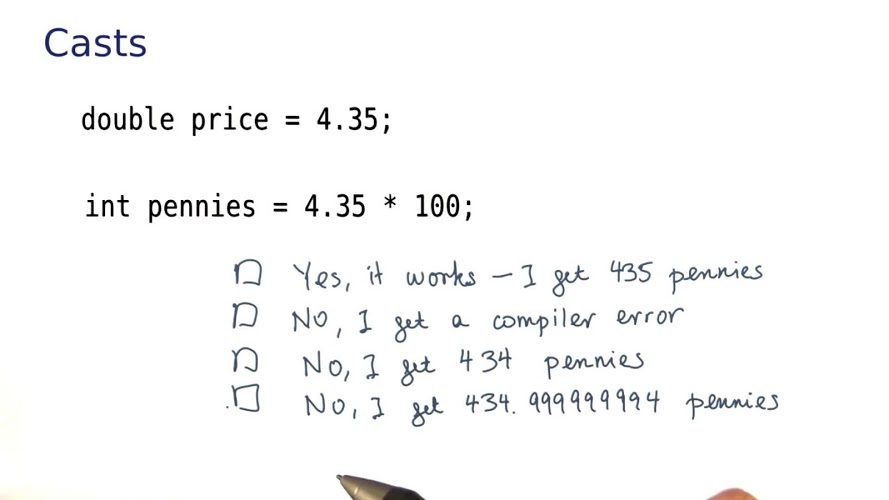 Casts
double price = 4.35;
int pennies = 4.35 * 100;
Yes, it works – I get 435 pennies
No, I get a compiler error
No, I get 434 pennies
No, I get 434.999999994 pennies